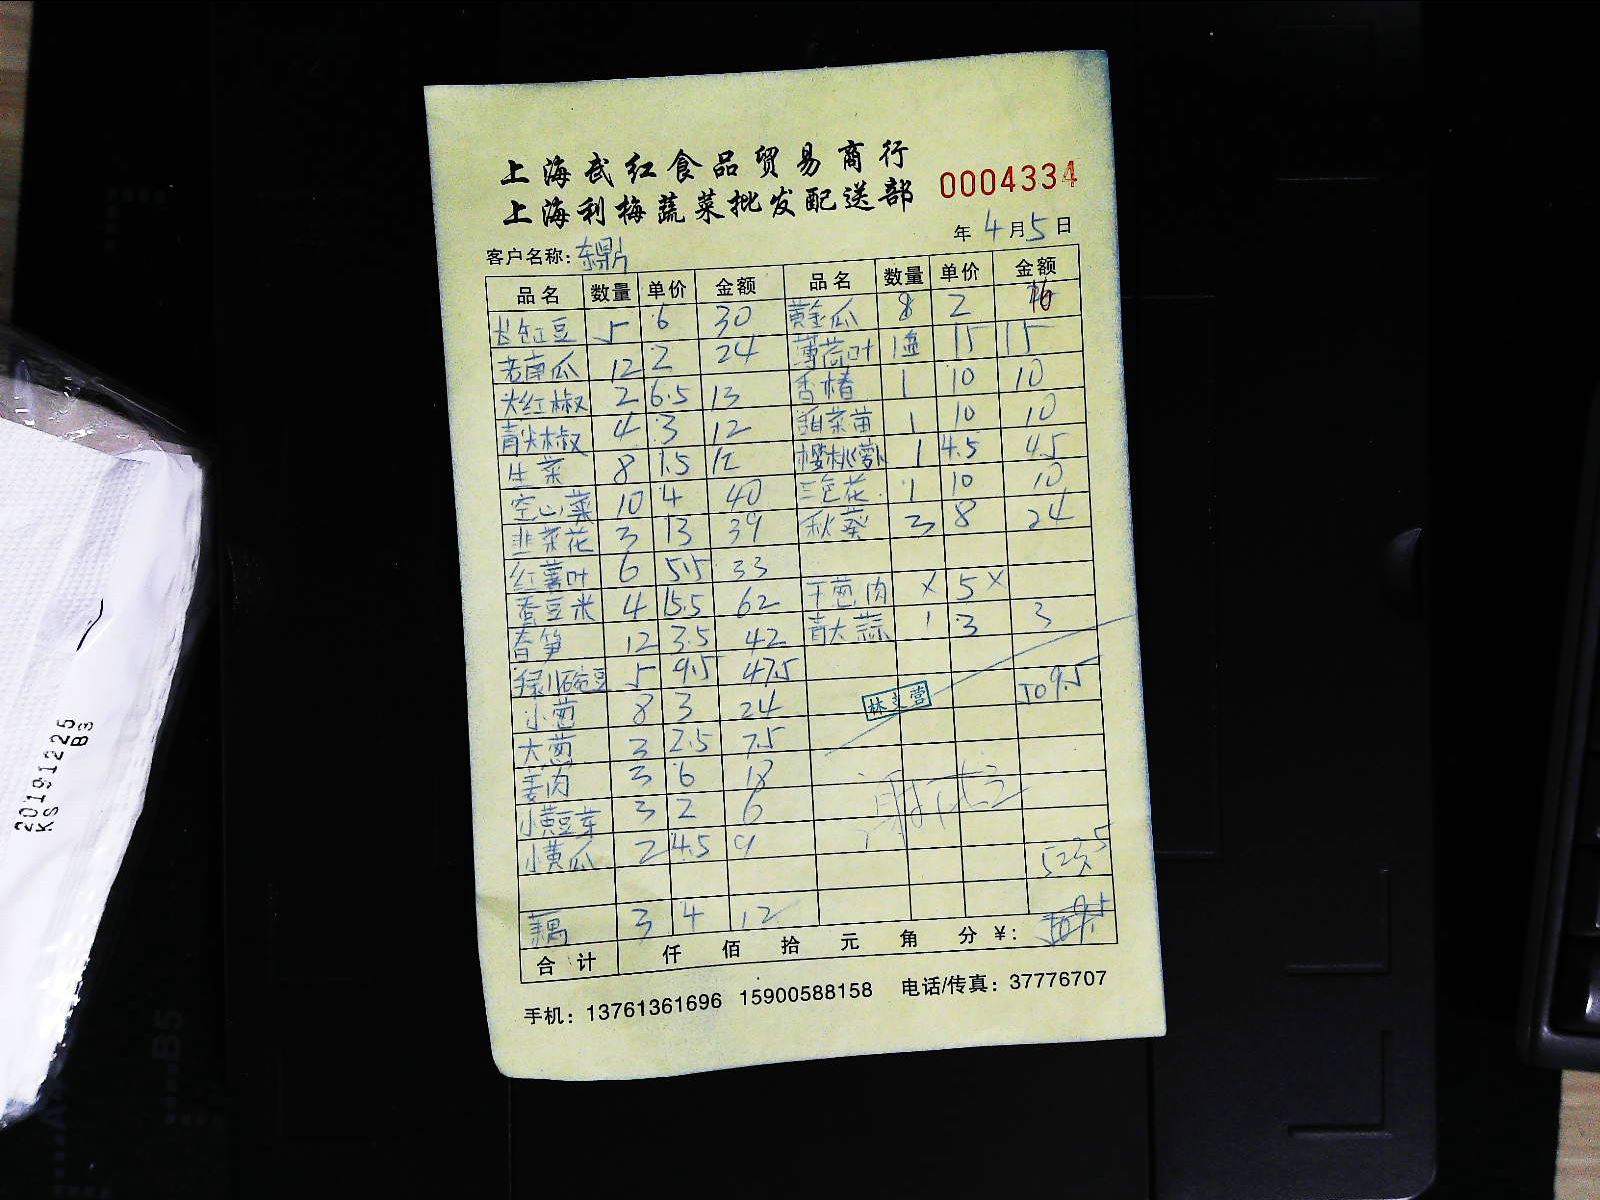 上海武红食品贸易商行
上海利梅蔬菜批发配送部
0004334
年 4月5日
客户名称：东鼎
品名 数量 单价 金额 品名 数量 单价 金额
长豇豆 5 6 30 黄金瓜 8 2 16
老南瓜 12 2 24 薄荷叶 1盒 15 15
尖红椒 2 6.5 13 香椿 1 10 10
青尖椒 4 3 12 甜菜苗 1 10 10
生菜 8 1.5 12 樱桃萝卜 1 4.5 4.5
空心菜 10 4 40 三色花 1 10 10
韭菜花 3 13 39 秋葵 3 8 24
红薯叶 6 5.5 33
蚕豆米 4 15.5 62 干葱肉 × 5 ×
春笋 12 3.5 42 青大蒜 1 3 3
绿豌豆 5 9.5 47.5
小葱 8 3 24 509.5
林支营
大葱 3 2.5 7.5
姜肉 3 6 18
小黄豆芽 3 2 6
小黄瓜 2 4.5 9
藕 3 4 12
合计 仟 佰 拾 元 角 分 ¥：
手机：13761361696 15900588158 电话/传真：37776707
20191225
KS B3
B5